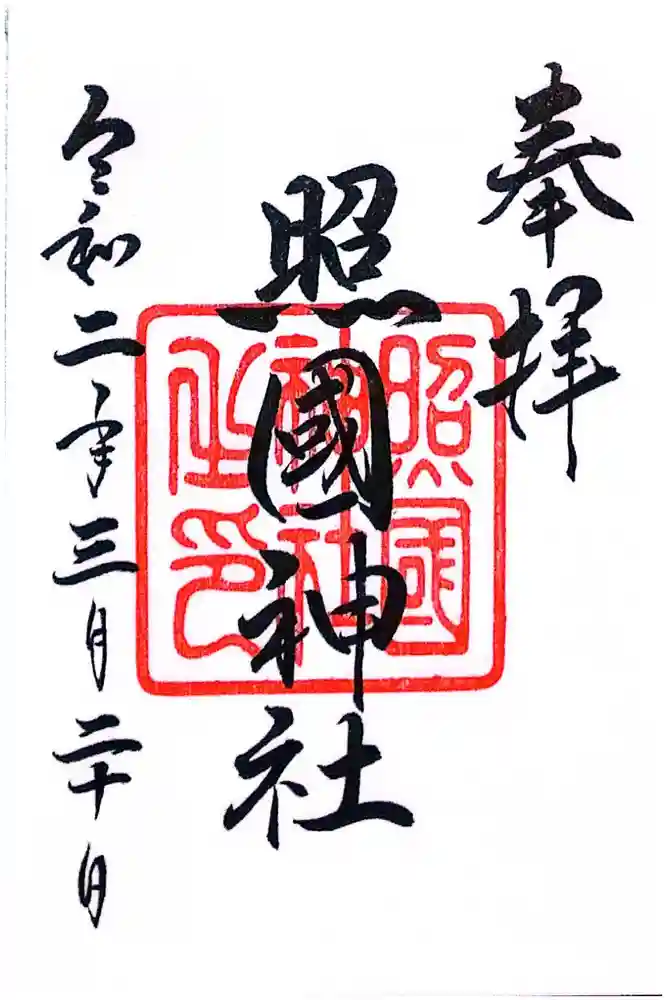 奉拝
照國神社
照国神社之印
令和二年三月二十日